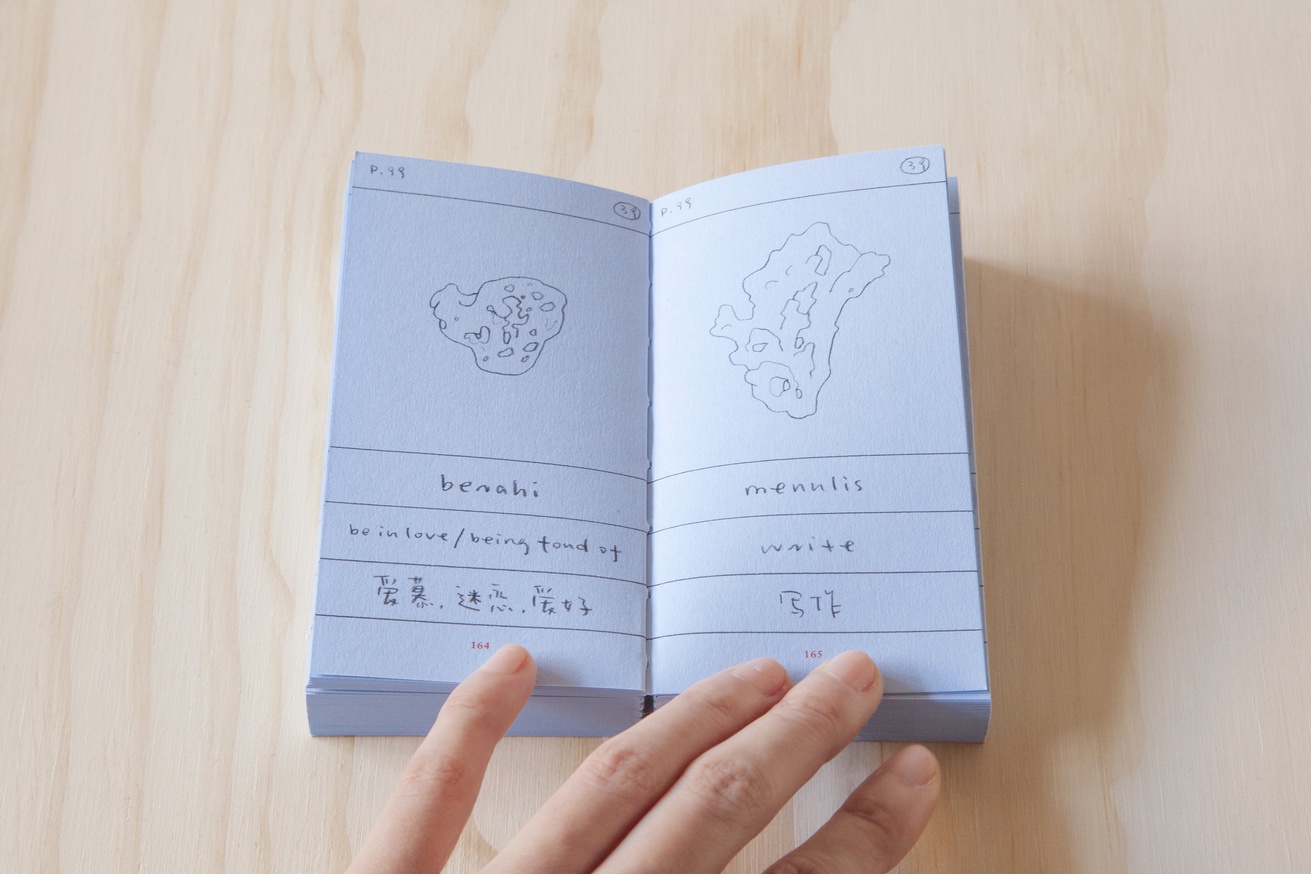 P.99
39
berahi
be in love/being fond of
爱慕,迷恋,爱好
164
P.99
39
menulis
write
写作
165